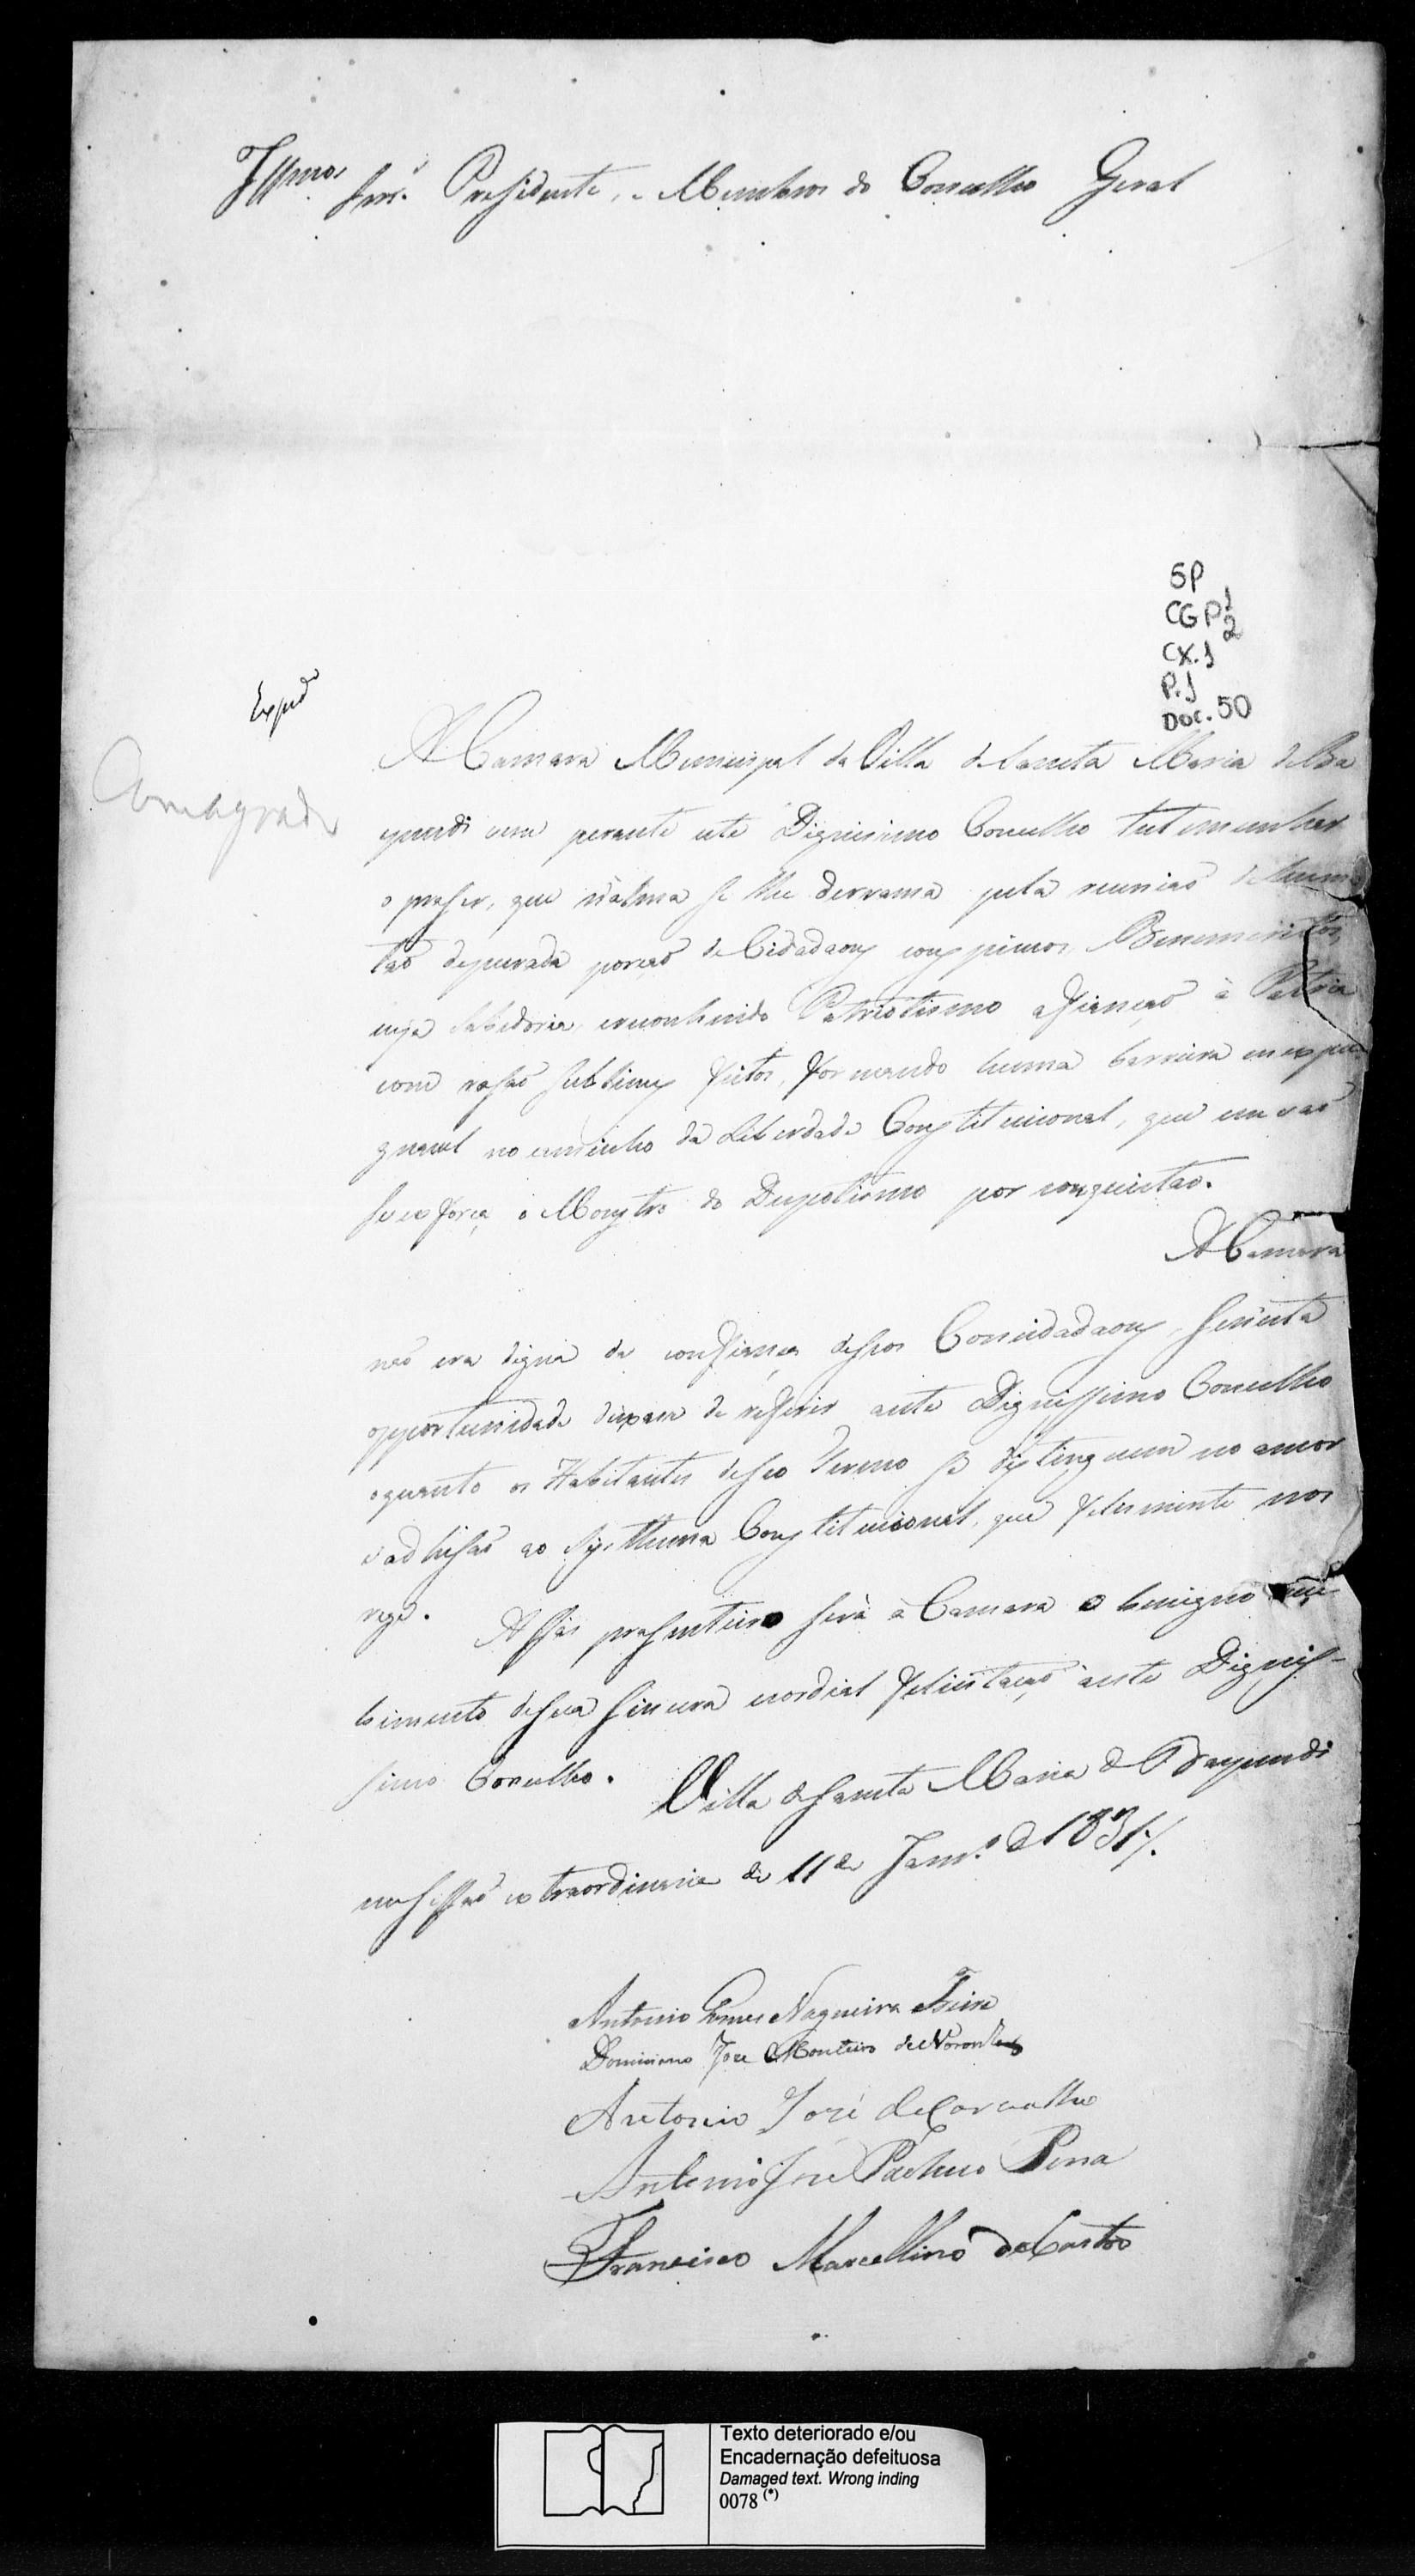 Illmos Snrs. Presidente, e Membros do Concelho Geral
SP
CGP 1 2
CX. 1
P. 1
Doc. 50
Exped
Com agrado
A Camara Municipal da Villa de Sancta Maria de Bae
pendi vem perante este Dignissimo Concelho testemunhar
o praser, que n'alma se lhe derrama pela reunião de huma
tão depurada porção de Cidadaons conspicuos, Benemeritos,
cuja Sabedoria, e reconhecido Patriotismo afianção à Patria
com rasão sublimes fructos, formando huma barreira inexpu
gnavel no caminho da Liberdade Constitucional, que em vão
se exforça o Monstro do Despotismo por conquistar.
A Camara
não era digna da confiança de seos Concidadaons, se n'esta
opportunidade deixasse de referir a este Dignissimo Concelho
o quanto os Habitantes de seo Termo se distinguem no amor
e adhesão ao Systhema Constitucional, que felismente nos
rege. Assás praserteiro será à Camara o benigno rece
bimento de sua sincera cordial felicitação a este Dignis-
simo Concelho. Villa de Sancta Maria de Baependi
em Sessão extraordinaria de 11 de Janro. de 1831.
Antonio Gomes Nogueira Freire
Domiciano Joze Monteiro de Noronha
Antonio José de Carvalho
Antonio José Pacheco Pena
Francisco Marcellino de Castro
Texto deteriorado e/ou
Encadernação defeituosa
Damaged text. Wrong inding
0078 (*)